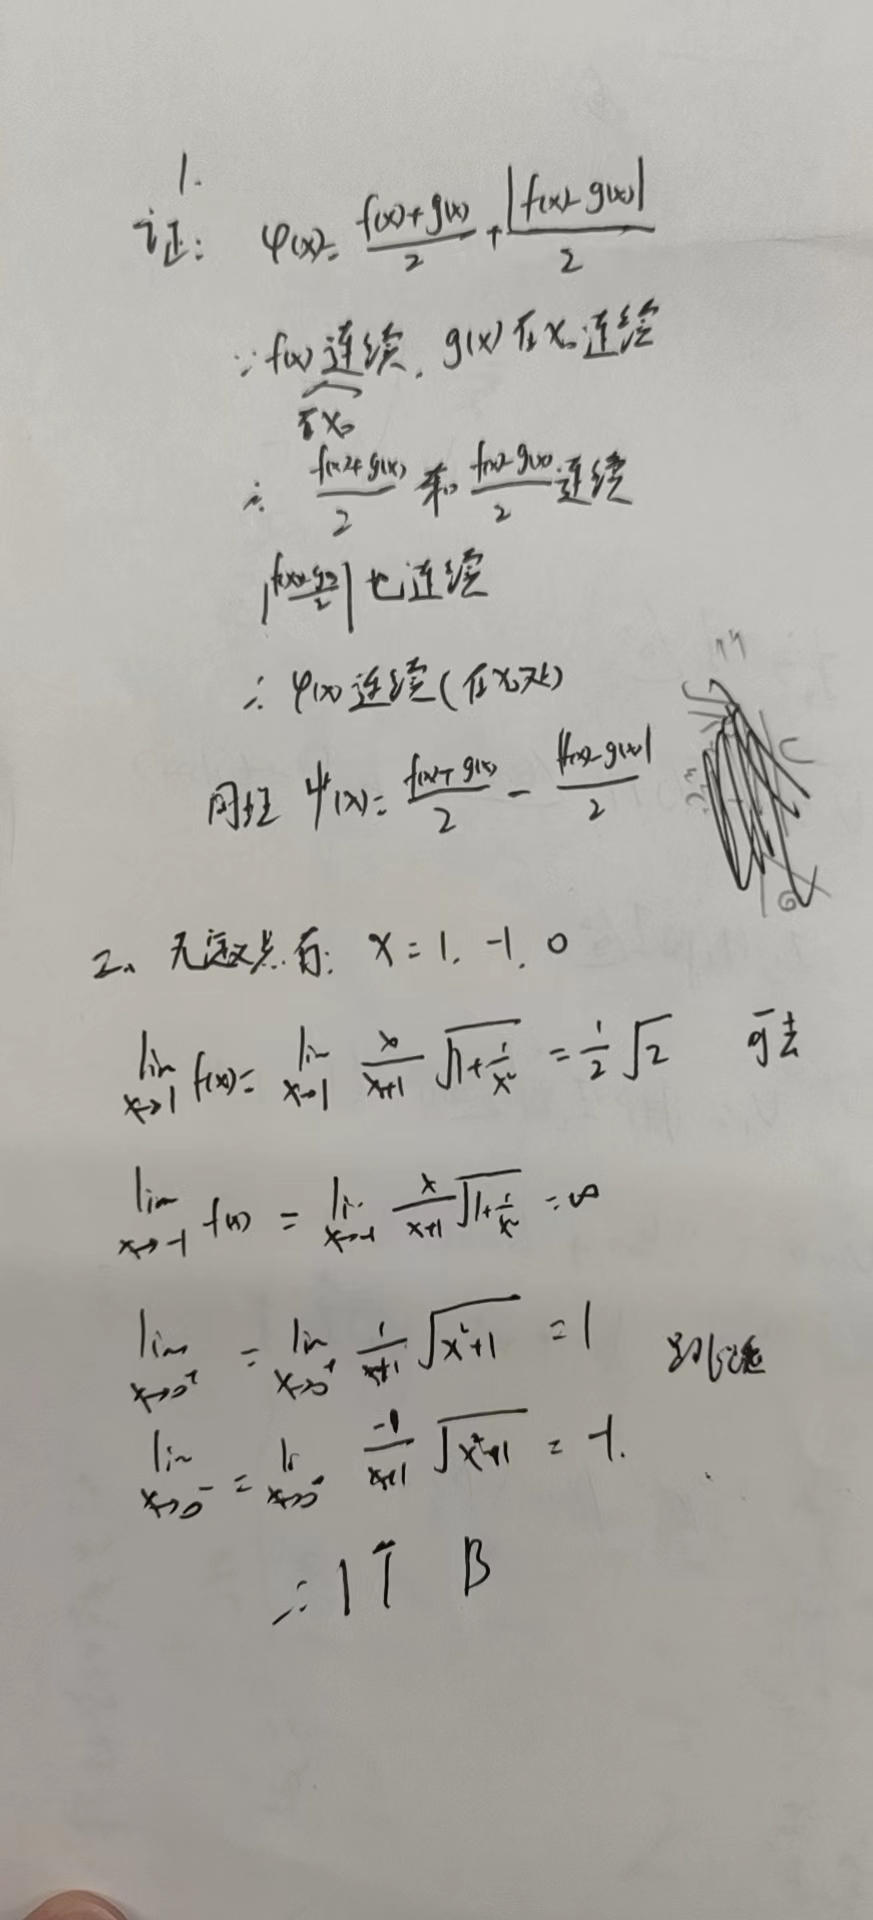 1.
证: φ(x)= (f(x)+g(x))/2 + |f(x)-g(x)|/2
∵ f(x) 连续, g(x) 在 x₀ 连续
在x₀
∴ (f(x)+g(x))/2 和 (f(x)-g(x))/2 连续
|(f(x)-g(x))/2| 也连续
∴ φ(x) 连续(在x₀处)
同理 ψ(x)= (f(x)+g(x))/2 - |f(x)-g(x)|/2
2、无定义点有: x=1. -1. 0
lim x→1 f(x)= lim x→1 x/(x+1) √(1+1/x²) = 1/2 √2 可去
lim x→-1 f(x) = lim x→-1 x/(x+1) √(1+1/x²) = ∞
lim x→0⁺ = lim x→0⁺ 1/(x+1) √(x²+1) = 1
lim x→0⁻ = li x→0⁻ -1/(x+1) √(x²+1) = -1.
∴ 1个 B